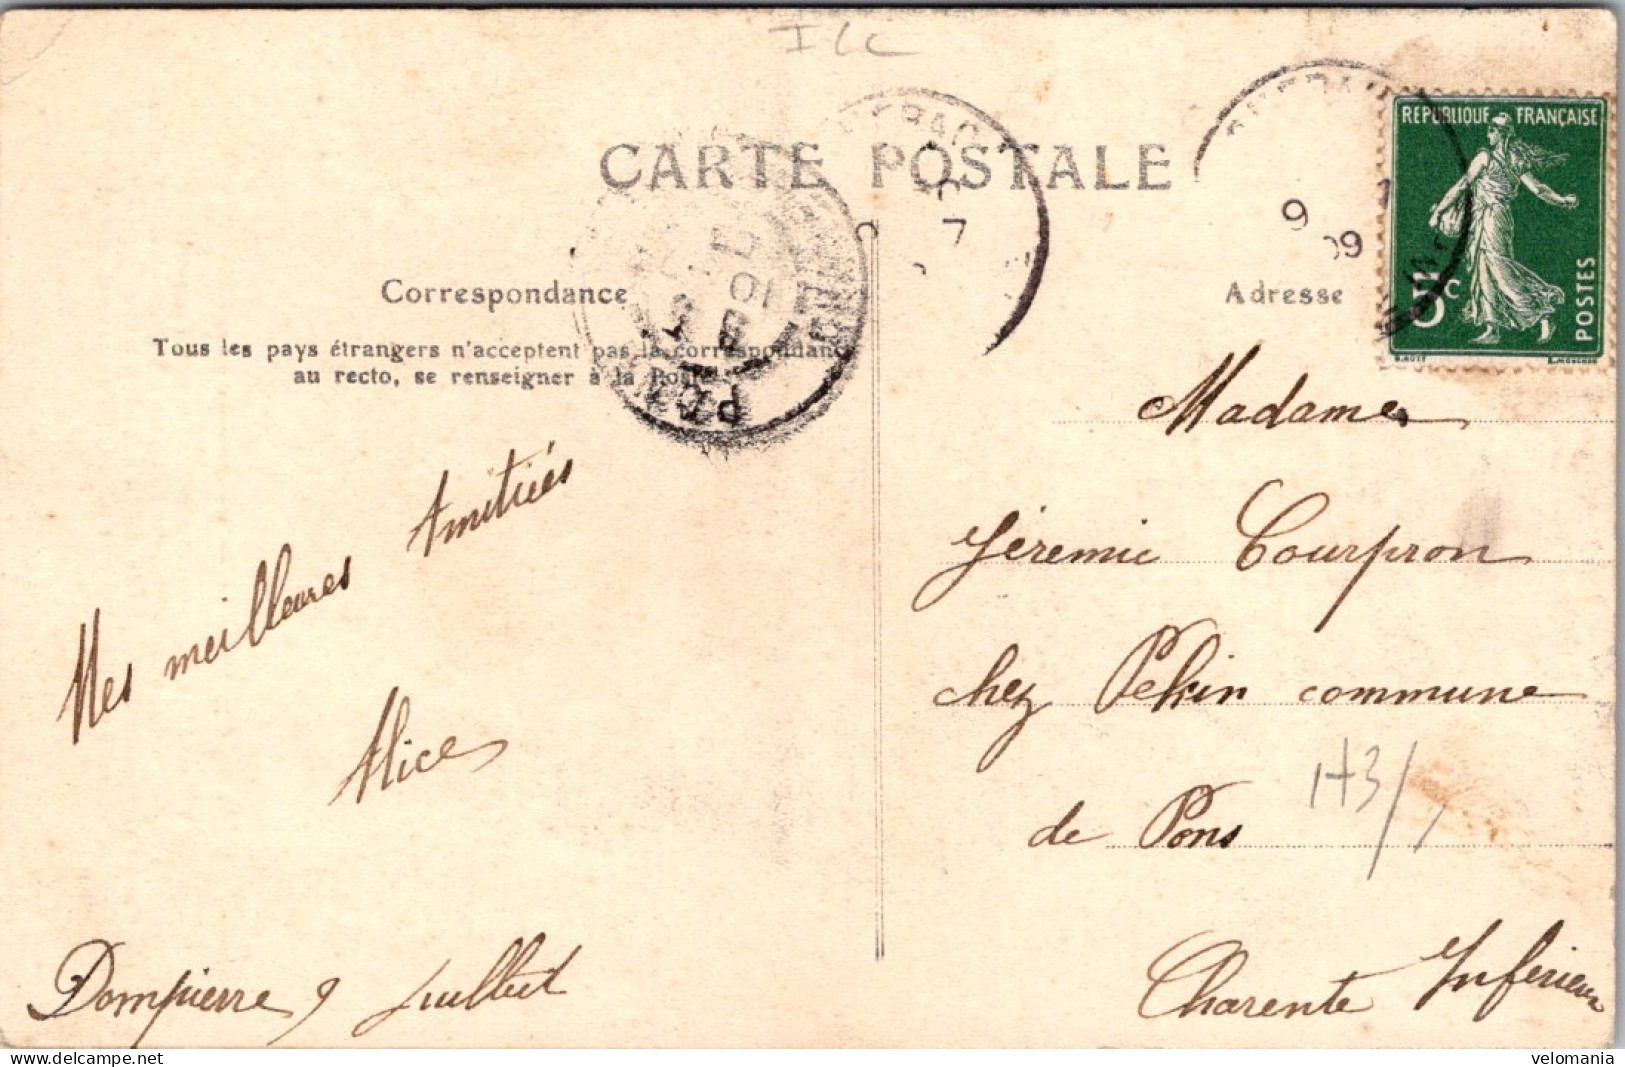 CARTE POSTALE
Correspondance
Adresse
Tous les pays étrangers n'acceptent pas la correspondance
au recto, se renseigner à la Poste
REPUBLIQUE FRANÇAISE
5c
POSTES
9
09
7
Mes meilleures Amitiés
Alice
Dompierre 9 Juillet
Madame
Jéremie Courpron
chez Pekin commune
de Pons
H3/
Charente Inférieure
velomania